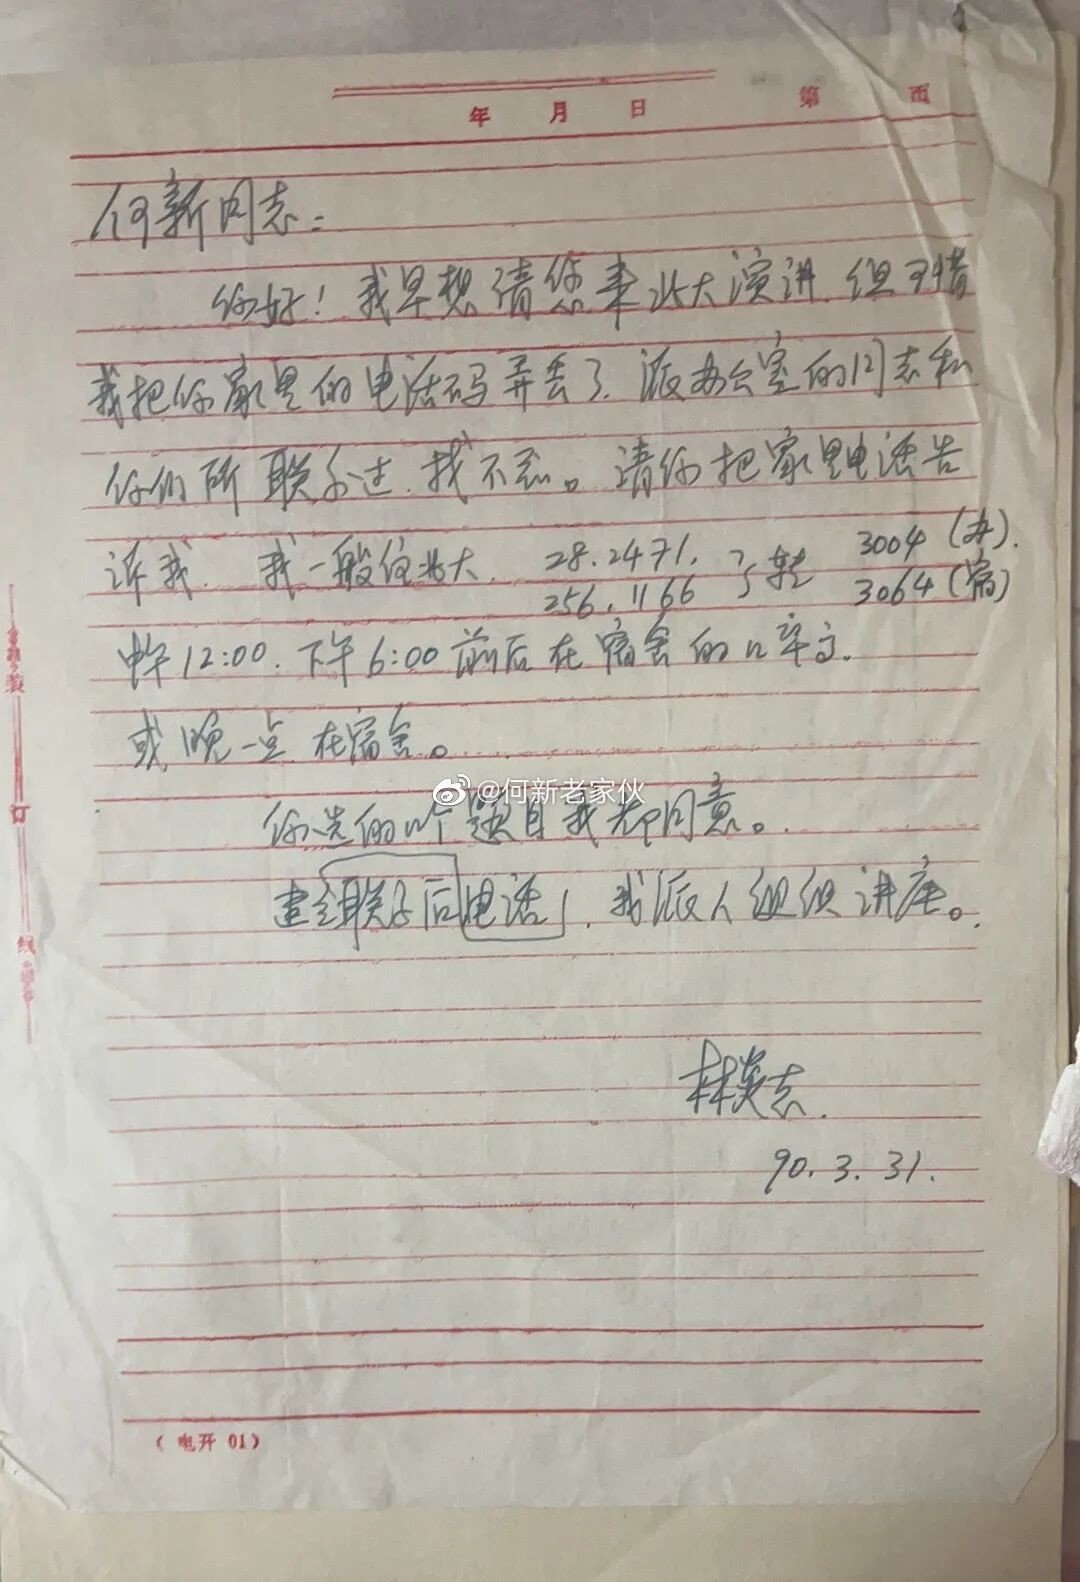 年 月 日 第 页
何新同志：
你好！我早想请您来北大演讲，但可惜
我把你家里的电话码弄丢了，派办公室的同志和
你们所联系过，找不到。请你把家里电话告
诉我，我一般住北大，28.2471, 256.1166 转 3004（办）. 3064（宿）
中午12:00，下午6:00前后在宿舍的
或晚一点在宿舍。
@何新老家伙
你选的个题目我都同意。
联系后电话，我派人组织讲座。
林炎志
90.3.31.
装
订
线
（电开 01）